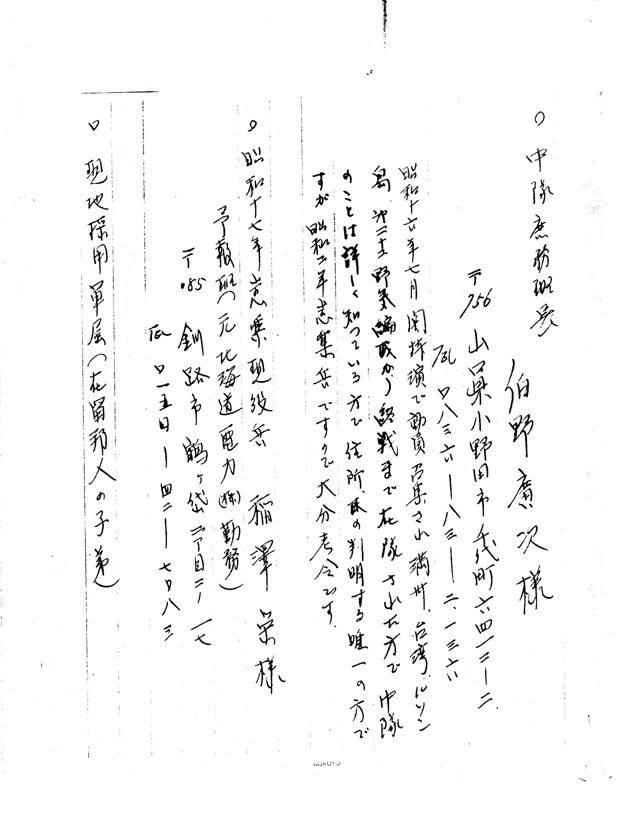 ○ 中隊庶務班長
伯野廣次様
〒756 山口県小野田市千代町六四一三ー二
TEL 〇八三六ー八三ー二一三六
昭和十六年七月関特演で動員召集され満州、台湾、ルソン
島、 野気編成から終戦まで在隊された方で中隊
のことは詳しく知っている方で住所、氏の判明する唯一の方で
すが昭和二年志集兵ですので大分考令です。
○ 昭和十七年志集現役兵 稲澤 栄様
予報班(元北海道電力(株)勤務)
〒085 釧路市鶴ヶ岱二丁目二ー一七
TEL 〇一五四ー四二ー七〇八三
○ 現地採用軍属(在留邦人の子弟)
KOKUYO